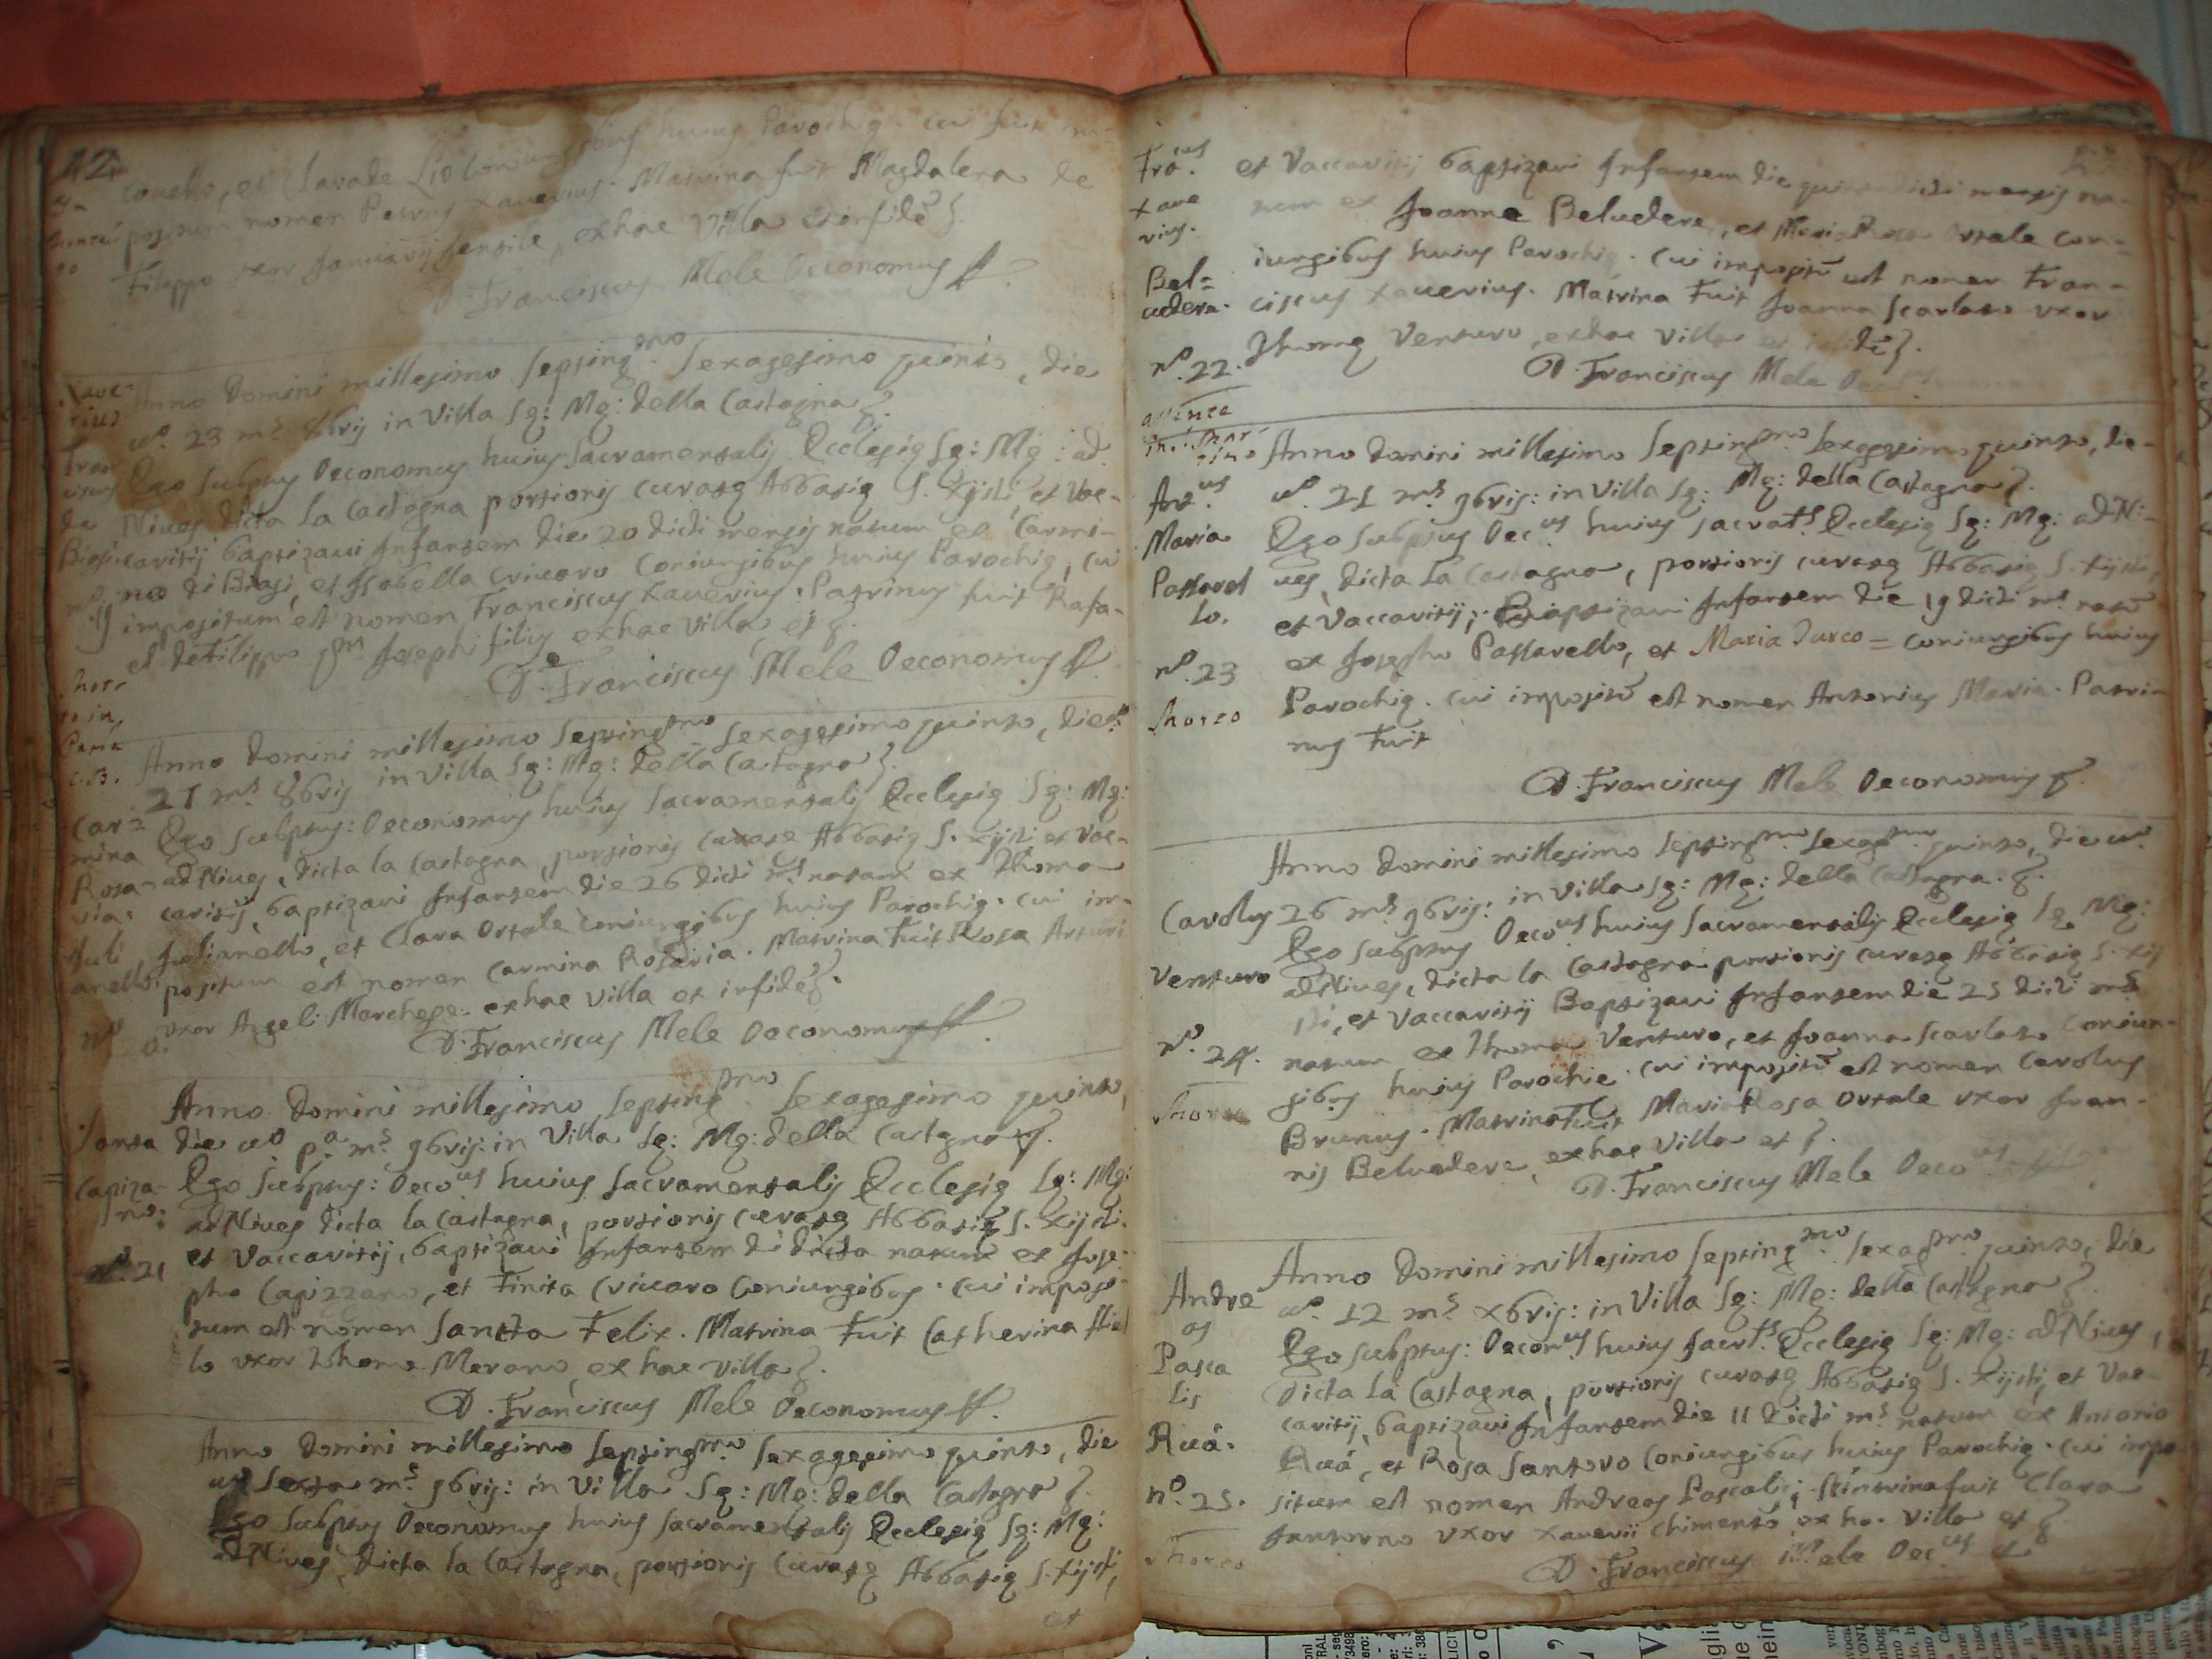 42
Couello, et Clara de Lio coniugibus huius Parochię. cui fuit im-
positum nomen Petrus Xauerius. Matrina fuit Magdalena de
Filippo vxor Januarij Gentile, ex hac Villa et in fidē &.
D. Franciscus Mele Oeconomus
Anno Domini millesimo septingmo. sexagesimo quinto, die
uo. 23 ms. 8bris in Villa Sę: Mę: della Castagna &.
Ego Subptus Oeconomus huius Sacramentalis Ecclesię Sę: Mę: ad
Niues dicta la Castagna portionis curatę Abbatię S. Xijsti, et Vac-
caritij baptizaui Infantem die 20 dicti mensis natum ex Carmi-
no di Biasi, et Isabella Criuaro Coniungibus huius Parochię, cui
impositum est nomen Franciscus Xauerius. Patrinus fuit Rafa-
el de Filippo qm Josephi filius ex hac Villa, et &.
D. Franciscus Mele Oeconomus
Anno Domini millesimo septingmo sexagesimo quinto, die
27 ms. 8bris in Villa Sę: Mę: della Castagna &.
Ego Subptus: Oeconomus huius Sacramentalis Ecclesię Sę: Mę:
ad Niues, dicta la Castagna, portionis curate Abbatię S. Xijsti et Vac-
caritij, baptizaui Infantem die 26 dicti ms. natam ex Thoma
Julianello, et Clara Ortale Coniungibus huius Parochię. cui im-
positum est nomen Carmina Rosaria. Matrina fuit Rosa Arturi
vxor Angeli Marchese ex hac Villa et in fidē &.
D. Franciscus Mele Oeconomus
Anno Domini millesimo septingmo. Sexagesimo quinto,
die uo pa. ms. 9bris: in Villa Sę: Mę: della Castagna &.
Ego Subptus: Oecous huius Sacramentalis Ecclesię Sę: Mę:
ad Niues dicta la Castagna, portionis curatę Abbatię S. Xijsti.
et Vaccaritij, baptizaui Infantem di dicta natum ex Jose-
pho Capizzano, et Finita Criuaro Coniungibus. cui imposi-
tum est nomen Sancto Felix. Matrina fuit Catherina
lo vxor Thoma Merano, ex hac Villa &.
D. Franciscus Mele Oeconomus
Anno Domini millesimo septingmo. sexagesimo quinto, die
uo sexta ms. 9bris: in Villa Sę: Mę: della Castagna &.
Ego Subptus Oeconomus huius Sacramentalis Ecclesię Sę: Mę:
ad Niues, dicta la Castagna, portionis Curatę Abbatię S. Xijsti,
et
Santo
Capiza-
no:
no. 21
Carmina
Rosa-
ria.
Juli
anello.
Fracus.
Xaue
rius.
Bel=
uedere.
no. 22.
et Vaccaritij baptizaui Infantem die quinta dicti mensis na-
tum ex Joanne Beluedere, et Maria Rosa Ortale con-
iungibus huius Parochię. cui impositū est nomen Fran-
ciscus Xauerius. Matrina Fuit Joanna Scarlato vxor
Thomę Venturo, ex hac Villa et in fidē &.
D. Franciscus Mele
Antus.
Maria
Passarel
lo.
no. 23
Anno Domini millesimo septingmo sexagesimo quinto, die
uo. 21 ms. 9bris: in Villa Sę: Mę: della Castagna &.
Ego Subptus Oecus huius sacratls Ecclesię Sę: Mę: ad Ni-
ues, dicta la Castagna, portionis curatę Abbatię S. Xijsti,
et Vaccaritij; Baptizaui Infantem die 19 dicti ms. natū
ex Josepho Passarello, et Maria Turco = coniungibus huius
Parochię. cui impositū est nomen Antonius Maria. Patri-
nus Fuit
D. Franciscus Mele Oeconomus
Carolus
Venturo
no. 24.
Anno Domini millesimo septingmo. sexagmo. quinto, die uo.
26 ms. 9bris: in Villa Sę: Mę: della Castagna. &.
Ego Subptus Oecous huius Sacramentalis Ecclesię Sę Mę:
ad Niues, dicta la Castagna portionis curatę Abbatię S. Xij
sti, et Vaccaritij Baptizaui Infantem die 25 dicti ms.
natum ex Thoma Venturo, et Joanna Scarlato Coniun-
gibus huius Parochie. cui impositū est nomen Carolus
Brunus. Matrina Fuit Maria Rosa Ortale vxor Joan-
nis Beluedere, ex hac Villa et &.
D. Franciscus Mele Oecous
Andre
as
Pasca
lis
Ruá.
no. 25.
Anno Domini millesimo septingmo. sexagmo. quinto, die
uo. 12 ms. Xbris: in Villa Sę: Mę: della Castagna &.
Ego subptus: Oeconus huius sacrtls. Ecclesię Sę: Mę: ad Niues,
dicta la Castagna, portionis curatę Abbatię S. Xijsti, et Vac-
caritij, baptizaui Infantem die 11 dicti ms. natum ex Antonio
Ruá, et Rosa Santoro Coniungibus huius Parochię. cui impo
situm est nomen Andreas Pascalis; Matrina fuit Clara
vxor Xauerii Chimento ex hac Villa et &.
D. Franciscus Mele Oecus